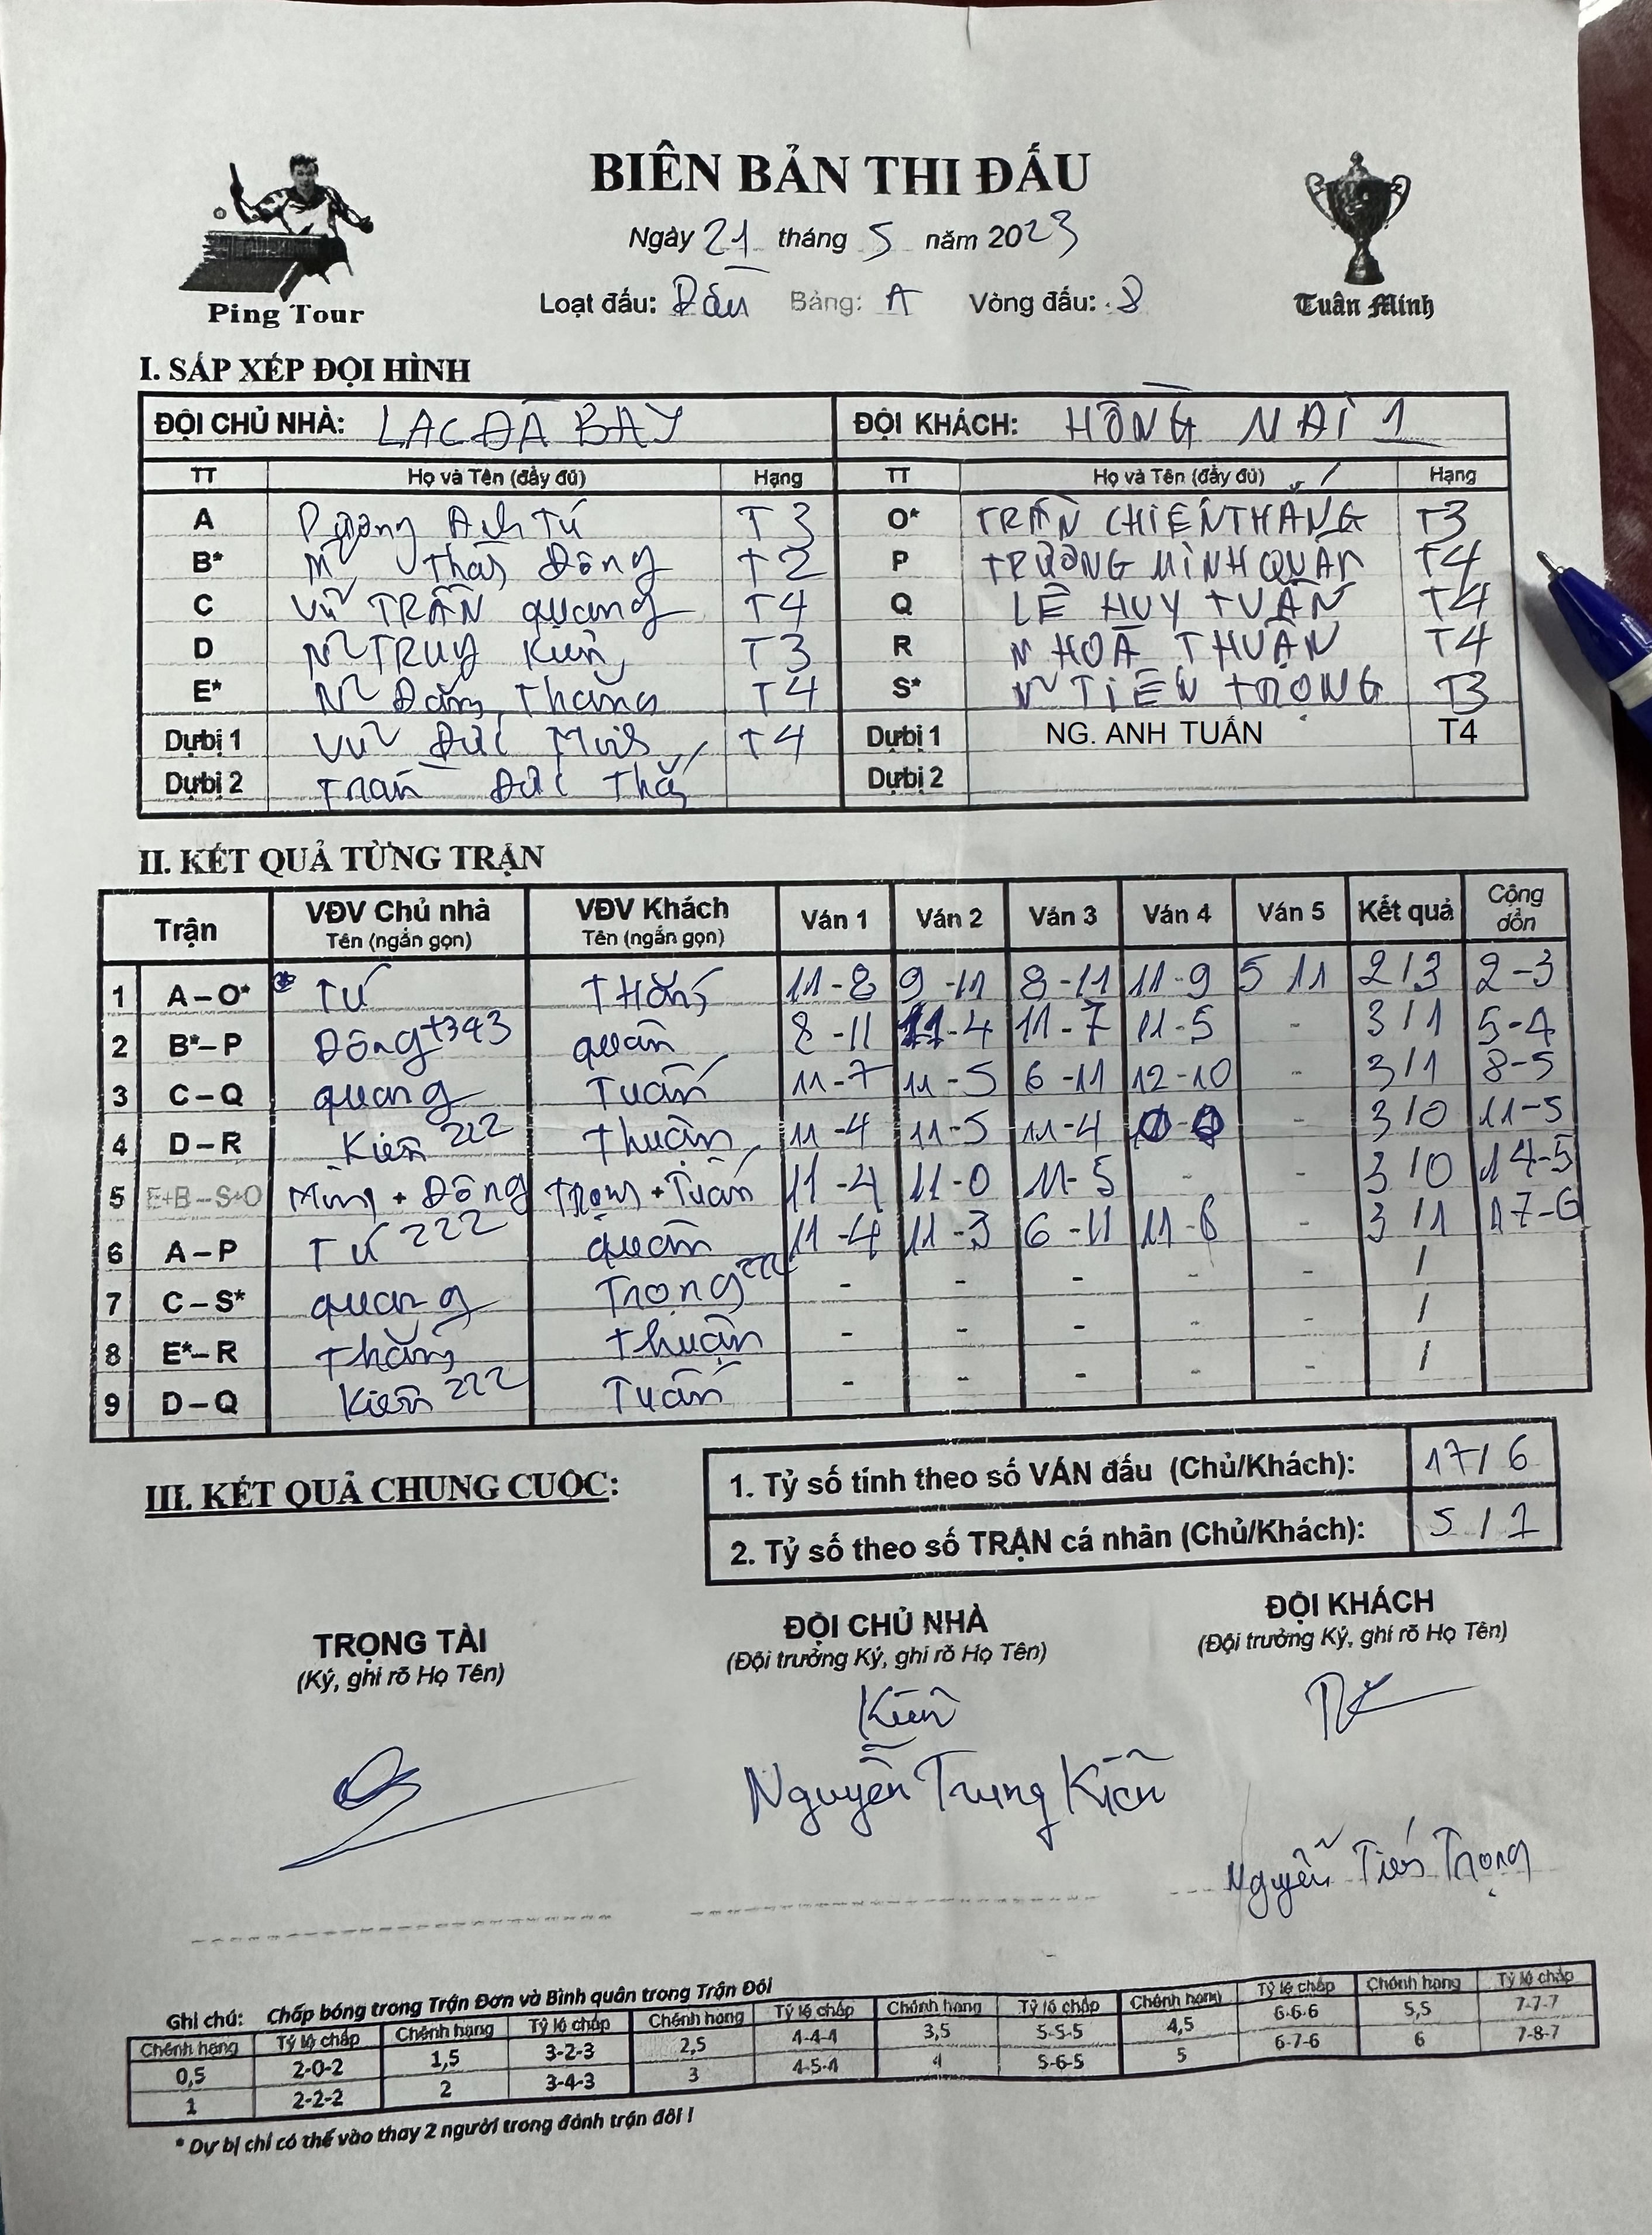 BIÊN BẢN THI ĐẤU
Ngày 21 tháng 5 năm 2023
Ping Tour
Tuấn Minh
Loạt đấu: Đầu Bảng: A Vòng đấu: 8
I. SẮP XẾP ĐỘI HÌNH
ĐỘI CHỦ NHÀ: LẠC ĐÀ BAY ĐỘI KHÁCH: HỒNG NAI 1
TT Họ và Tên (đầy đủ) Hạng TT Họ và Tên (đầy đủ) Hạng
A Dương Anh Tú T3 O* TRẦN CHIẾN THẮNG T3
B* Thái Đông T2 P TRƯƠNG MINH QUÂN T4
C Vũ TRẦN quang T4 Q LÊ HUY TUẤN T4
D Kiên T3 R HOÀ THUẬN T4
E* Đăng Thắng T4 S* TIẾN TRỌNG T3
Dự bị 1 Vũ Đức T4 Dự bị 1 NG. ANH TUẤN T4
Dự bị 2 Trần Đức Dự bị 2
II. KẾT QUẢ TỪNG TRẬN
Trận VĐV Chủ nhà Tên (ngắn gọn) VĐV Khách Tên (ngắn gọn) Ván 1 Ván 2 Ván 3 Ván 4 Ván 5 Kết quả Cộng dồn
1 A – O* Tú THắng 11-8 9-11 8-11 11-9 5 11 2/3 2-3
2 B*– P Đông+343 quân 8-11 11-4 11-7 11-5 - 3/1 5-4
3 C – Q quang Tuấn 11-7 11-5 6-11 12-10 - 3/1 8-5
4 D – R Kiên 222 Thuận 11-4 11-5 11-4 0-0 - 3/0 11-5
5 E+B – S+O Minh + Đông Trọng + Tuấn 11-4 11-0 11-5 - - 3/0 14-5
6 A – P Tú 222 quân 11-4 11-3 6-11 11-6 - 3/1 17-6
7 C – S* quang Trọng 222 - - - - - /
8 E*– R Thắng Thuận - - - - - /
9 D – Q Kiên 222 Tuấn - - - - - /
III. KẾT QUẢ CHUNG CUỘC:
1. Tỷ số tính theo số VÁN đấu (Chủ/Khách): 17/6
2. Tỷ số theo số TRẬN cá nhân (Chủ/Khách): 5/1
TRỌNG TÀI
(Ký, ghi rõ Họ Tên)
ĐỘI CHỦ NHÀ
(Đội trưởng Ký, ghi rõ Họ Tên)
ĐỘI KHÁCH
(Đội trưởng Ký, ghi rõ Họ Tên)
Kiên
Nguyễn Trung Kiên
Nguyễn Tiến Trọng
Ghi chú: Chấp bóng trong Trận Đơn và Bình quân trong Trận Đôi
Chênh hạng Tỷ lệ chấp Chênh hạng Tỷ lệ chấp Chênh hạng Tỷ lệ chấp Chênh hạng Tỷ lệ chấp Chênh hạng Tỷ lệ chấp Chênh hạng Tỷ lệ chấp
0,5 2-0-2 1,5 3-2-3 2,5 4-4-4 3,5 5-5-5 4,5 6-6-6 5,5 7-7-7
1 2-2-2 2 3-4-3 3 4-5-4 4 5-6-5 5 6-7-6 6 7-8-7
* Dự bị chỉ có thể vào thay 2 người trong đánh trận đôi !